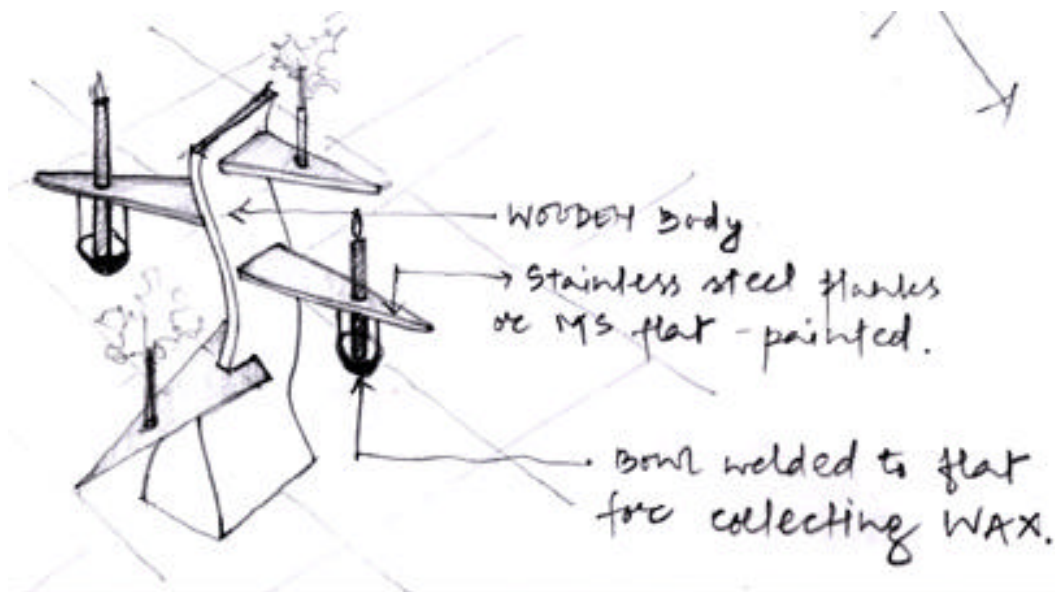 WOODEN Body
Stainless steel flanks
or MS flat - painted.
Bowl welded to flat
for collecting WAX.